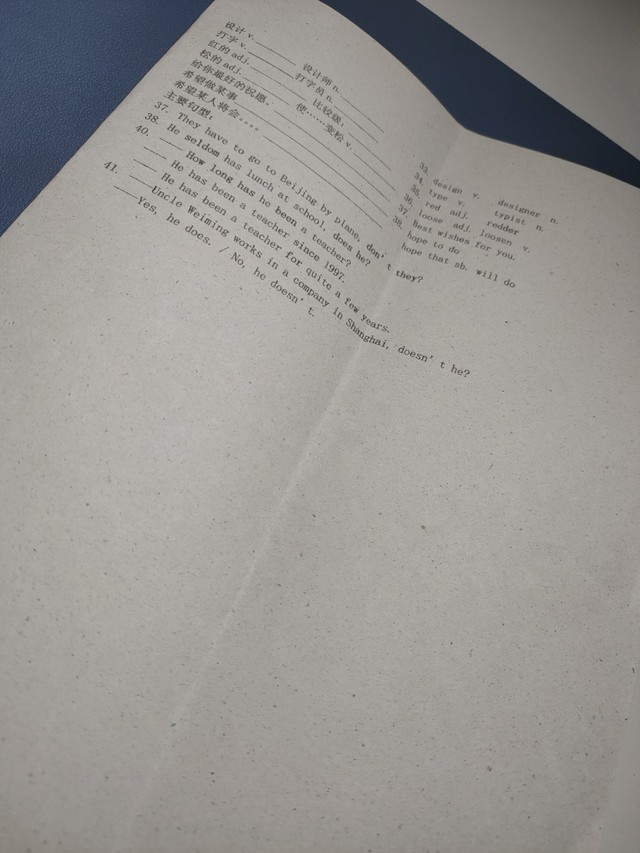 设计 v. ________ 设计师 n. ________
打字 v. ________ 打字员 n. ________
红的 adj. ________ 比较级: ________
松的 adj. ________ 使……变松 v. ________
给你最好的祝愿。 ________
希望做某事 ________
希望某人将会。。。。 ________
主要句型:
37. They have to go to Beijing by plane, don't they?
38. He seldom has lunch at school, does he?
40. ____ How long has he been a teacher?
____ He has been a teacher since 1997.
____ He has been a teacher for quite a few years.
41. ____Uncle Weiming works in a company in Shanghai, doesn't he?
____Yes, he does. / No, he doesn't.
33. design v. designer n.
34. type v. typist n.
35. red adj. redder
36. loose adj. loosen v.
37. Best wishes for you.
38. hope to do
hope that sb. will do